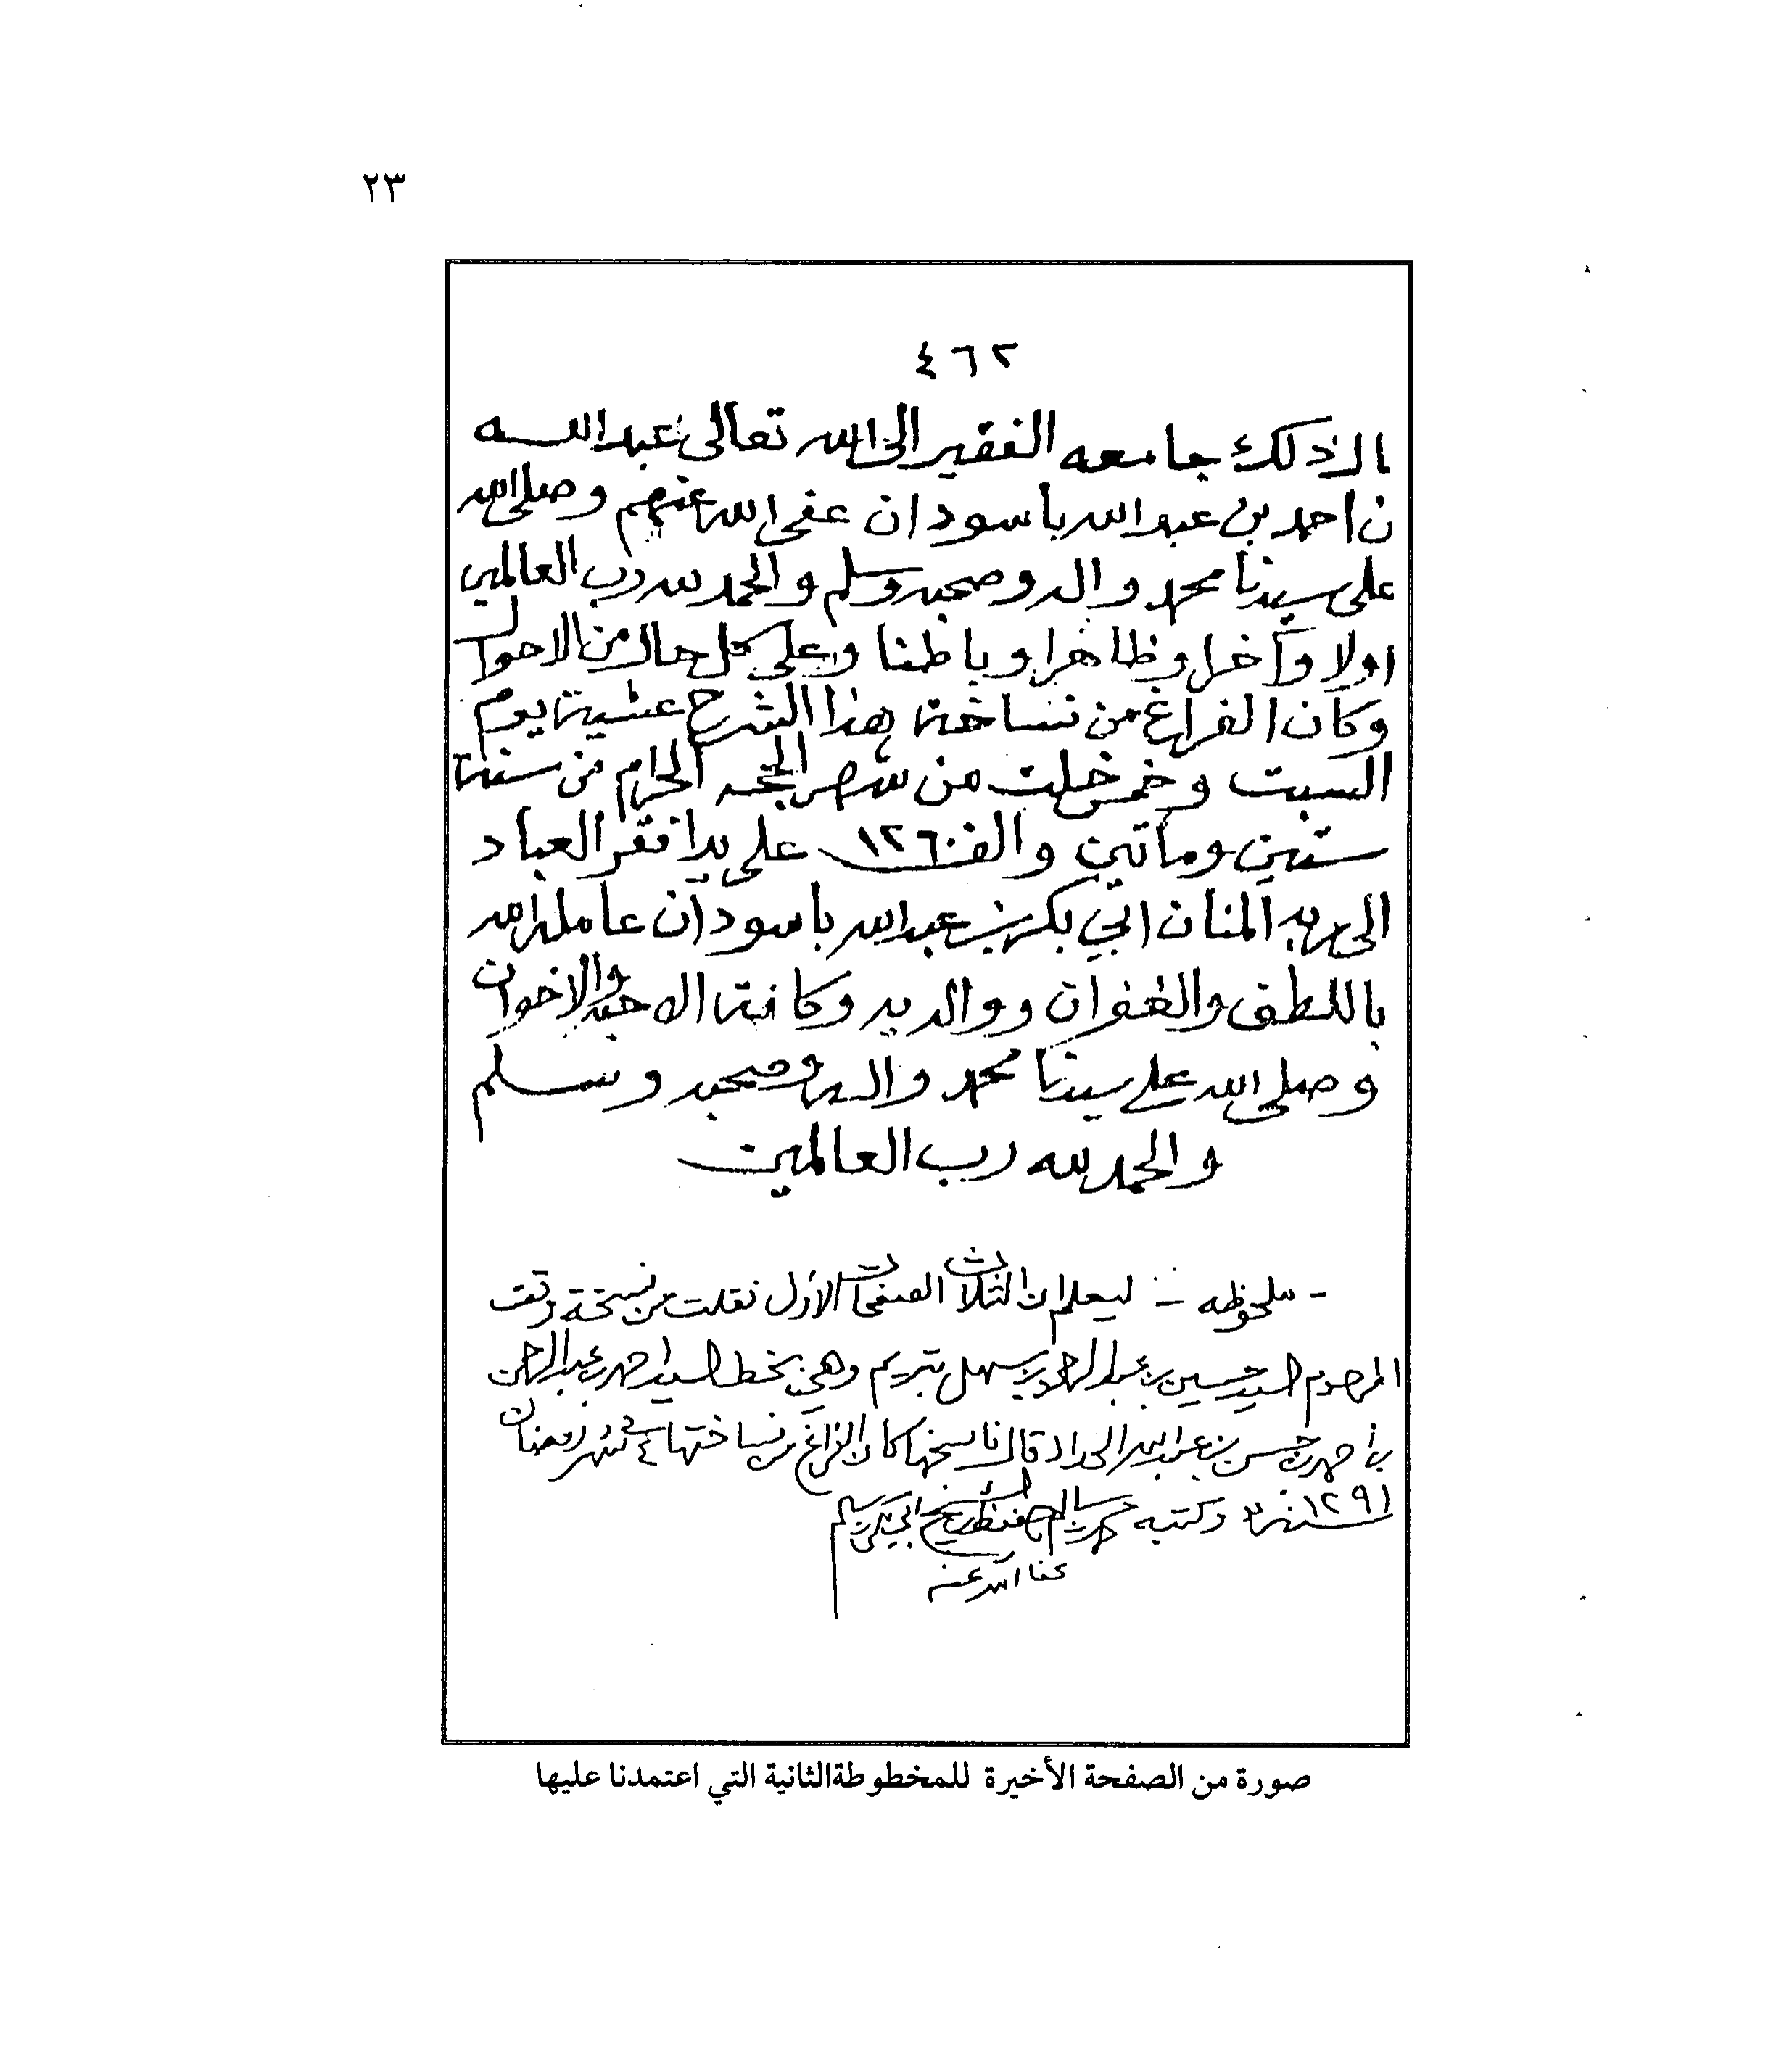 ٢٣
٤٦٢
قال ذلك جامعه الفقير الى الله تعالى عبد الله
بن احمد بن عبد الله باسودان عفى الله عنهم وصلى الله
على سيدنا محمد واله وصحبه وسلم والحمد لله رب العالمين
اولا وآخرا وظاهرا وباطنا وعلى كل حال من الاحوال
وكان الفراغ من نساخة هذا الشرح عشية يوم
السبت وخمس خلت من شهر الحجه الحرام من سنة
ستين وماتين والف ١٢٦٠ على يد افقر العباد
الى ربه المنان ابي بكر بن عبد الله باسودان عامله الله
باللطف والغفران ووالديه وكافة الاحبه والاخوان
وصلى الله على سيدنا محمد واله وصحبه وسلم
والحمد لله رب العالمين
- ملحوظه - ليعلم ان الثلاث الصفحات الأول نقلت من نسخة وقف
المرحوم السيد حسين بن عبد الرحمن بن سهل بتريم وهي بخط السيد احمد بن عبد الرحمن
بن احمد بن حسن بن عبد الله الحداد قال ناسخها كان الفراغ من نساختها ٤ شهر رمضان
سنة ١٢٩١ وكتبه سالم حفيظ بن الشيخ ابي بكر بن سالم
عفا الله عنه
صورة من الصفحة الأخيرة للمخطوطة الثانية التي اعتمدنا عليها